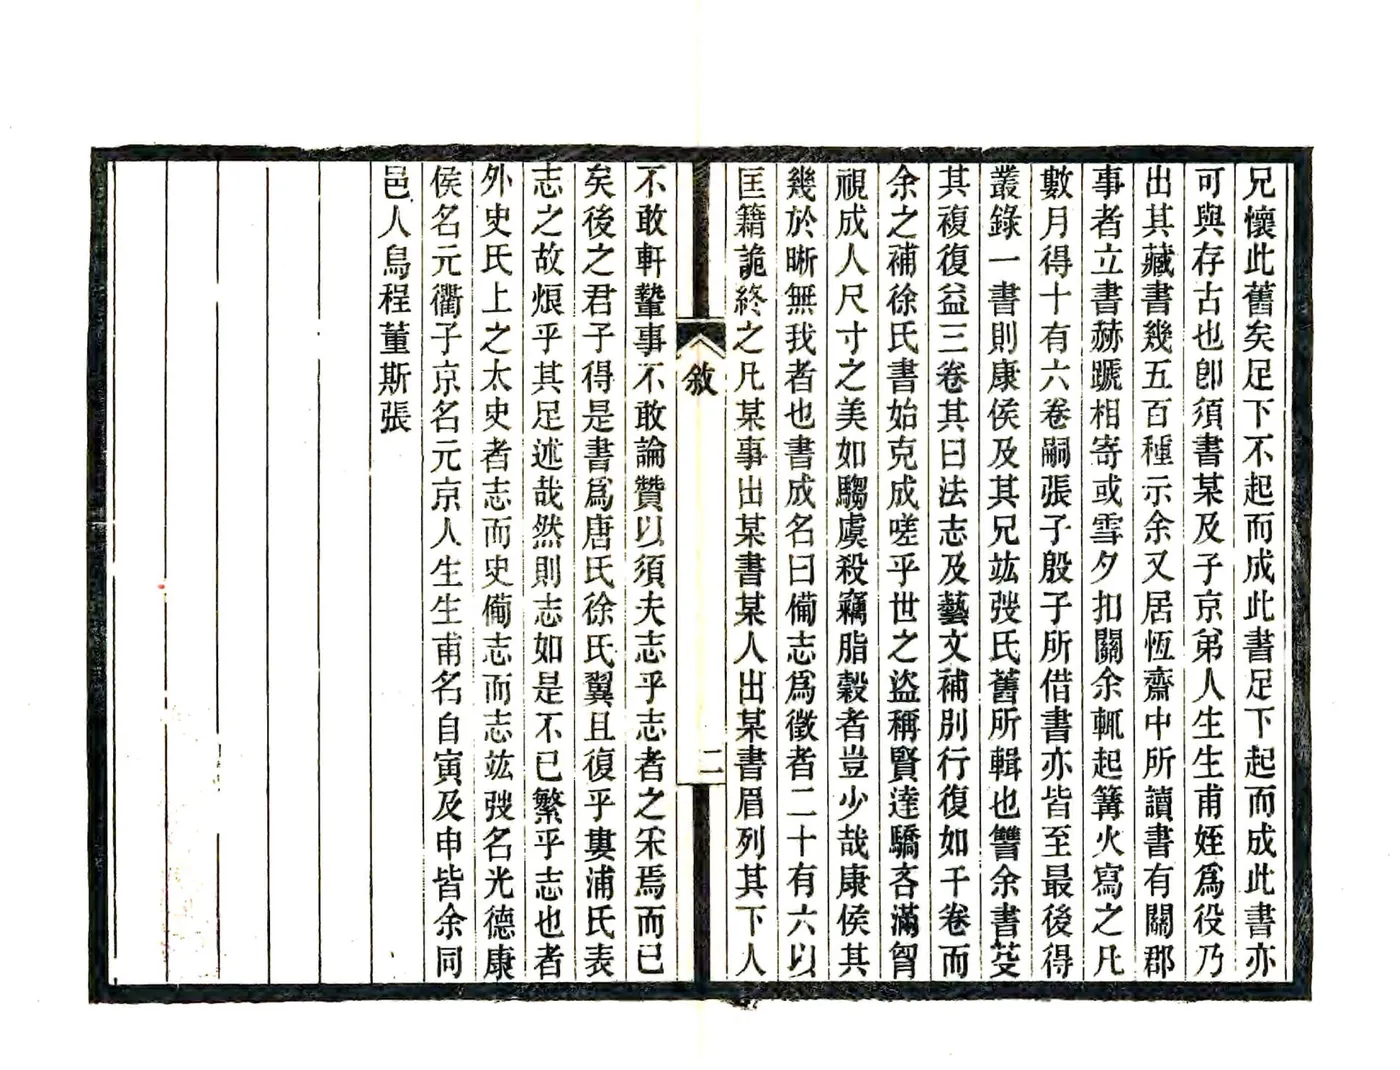 兄懷此舊矣足下不起而成此書足下起而成此書亦
可與存古也卽須書某及子京弟人生生甫姪爲役乃
出其藏書幾五百種示余又居恆齋中所讀書有關郡
事者立書赫蹏相寄或雪夕扣關余輒起篝火寫之凡
數月得十有六卷嗣張子殷子所借書亦皆至最後得
叢錄一書則康侯及其兄竑弢氏舊所輯也讐余書芟
其複復益三卷其曰法志及藝文補別行復如干卷而
余之補徐氏書始克成嗟乎世之盜稱賢達驕吝滿胷
視成人尺寸之美如騶虞殺竊脂穀者豈少哉康侯其
幾於晰無我者也書成名曰僃志爲徵者二十有六以
匡籍詭終之凡某事出某書某人出某書眉列其下人
敘
二
不敢軒鞏事不敢論贊以須夫志乎志者之宋焉而已
矣後之君子得是書爲唐氏徐氏翼且復乎婁浦氏表
志之故烺乎其足述哉然則志如是不已繁乎志也者
外史氏上之太史者志而史僃志而志竑弢名光德康
侯名元衢子京名元京人生生甫名自寅及申皆余同
邑人烏程董斯張